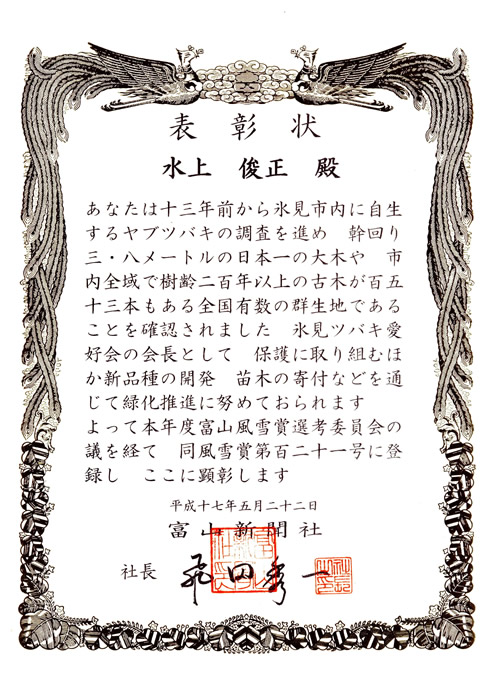 表彰状
水上 俊正 殿
あなたは十三年前から氷見市内に自生
するヤブツバキの調査を進め 幹回り
三・八メートルの日本一の大木や 市
内全域で樹齢二百年以上の古木が百五
十三本もある全国有数の群生地である
ことを確認されました 氷見ツバキ愛
好会の会長として 保護に取り組むほ
か新品種の開発 苗木の寄付などを通
じて緑化推進に努めておられます
よって本年度富山風雪賞選考委員会の
議を経て 同風雪賞第百二十一号に登
録し ここに顕彰します
平成十七年五月二十二日
富山新聞社
社長 飛田秀一